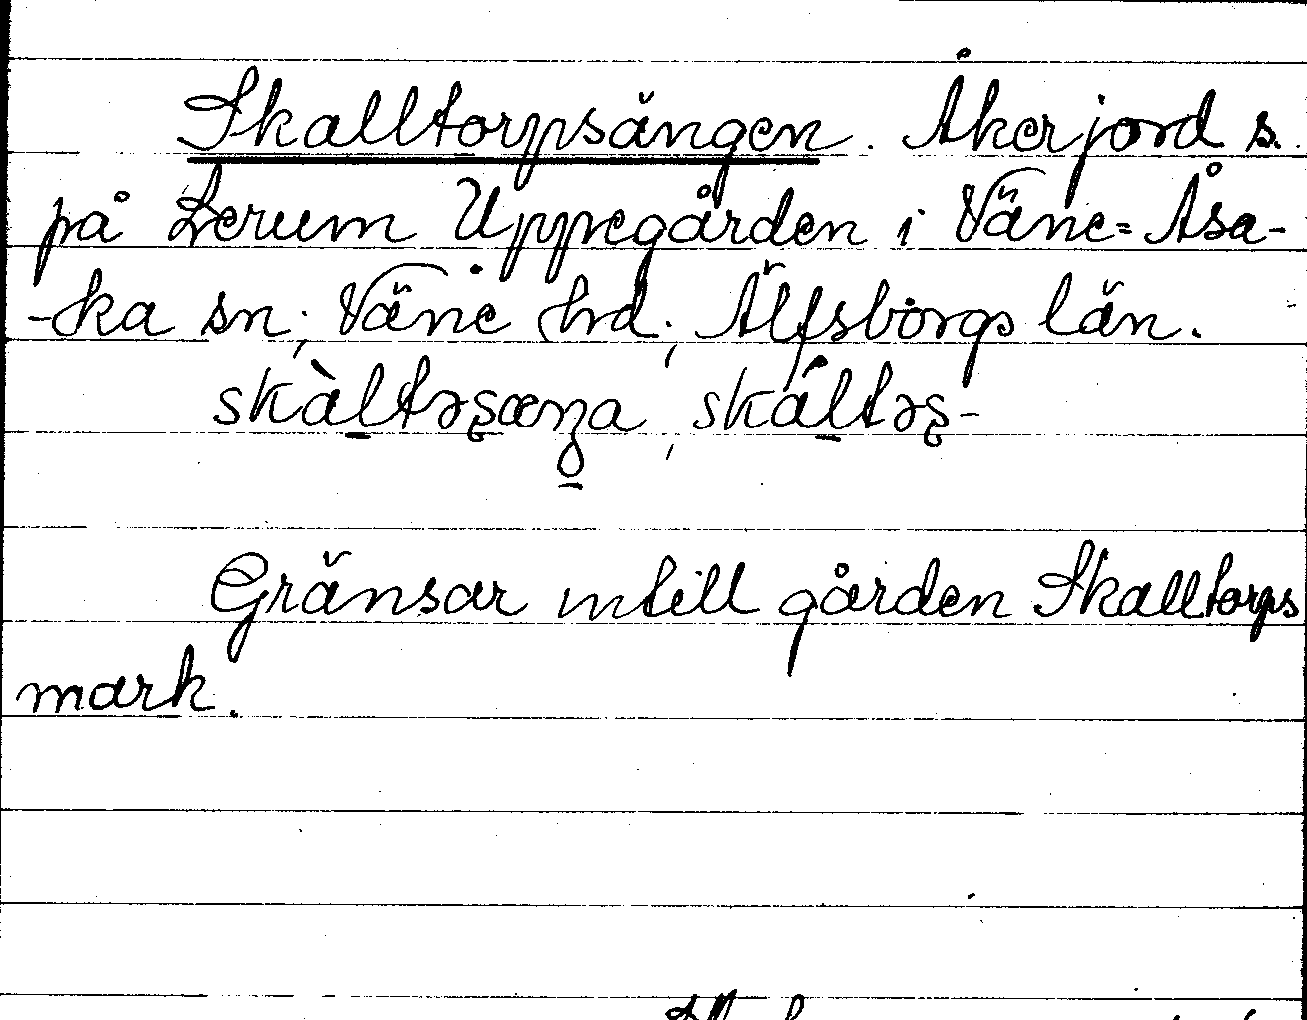 Skalltorpsängen. Åkerjord s.
på Lerum Uppegården i Väne=Åsa-
-ka sn, Väne hd, Älfsborgs län.
skàltǝʂæŋa, skáltǝʂ-
Gränsar intill gården Skalltorps
mark.